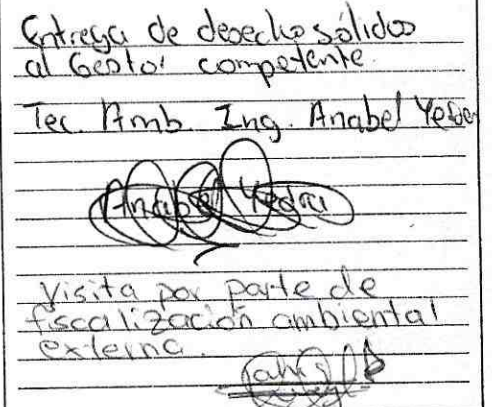 Entrega de desecho sólidos
al Gestor competente.
Tec. Amb. Ing. Anabel
Anabel Yedra
Visita por parte de
fiscalización ambiental
externa.